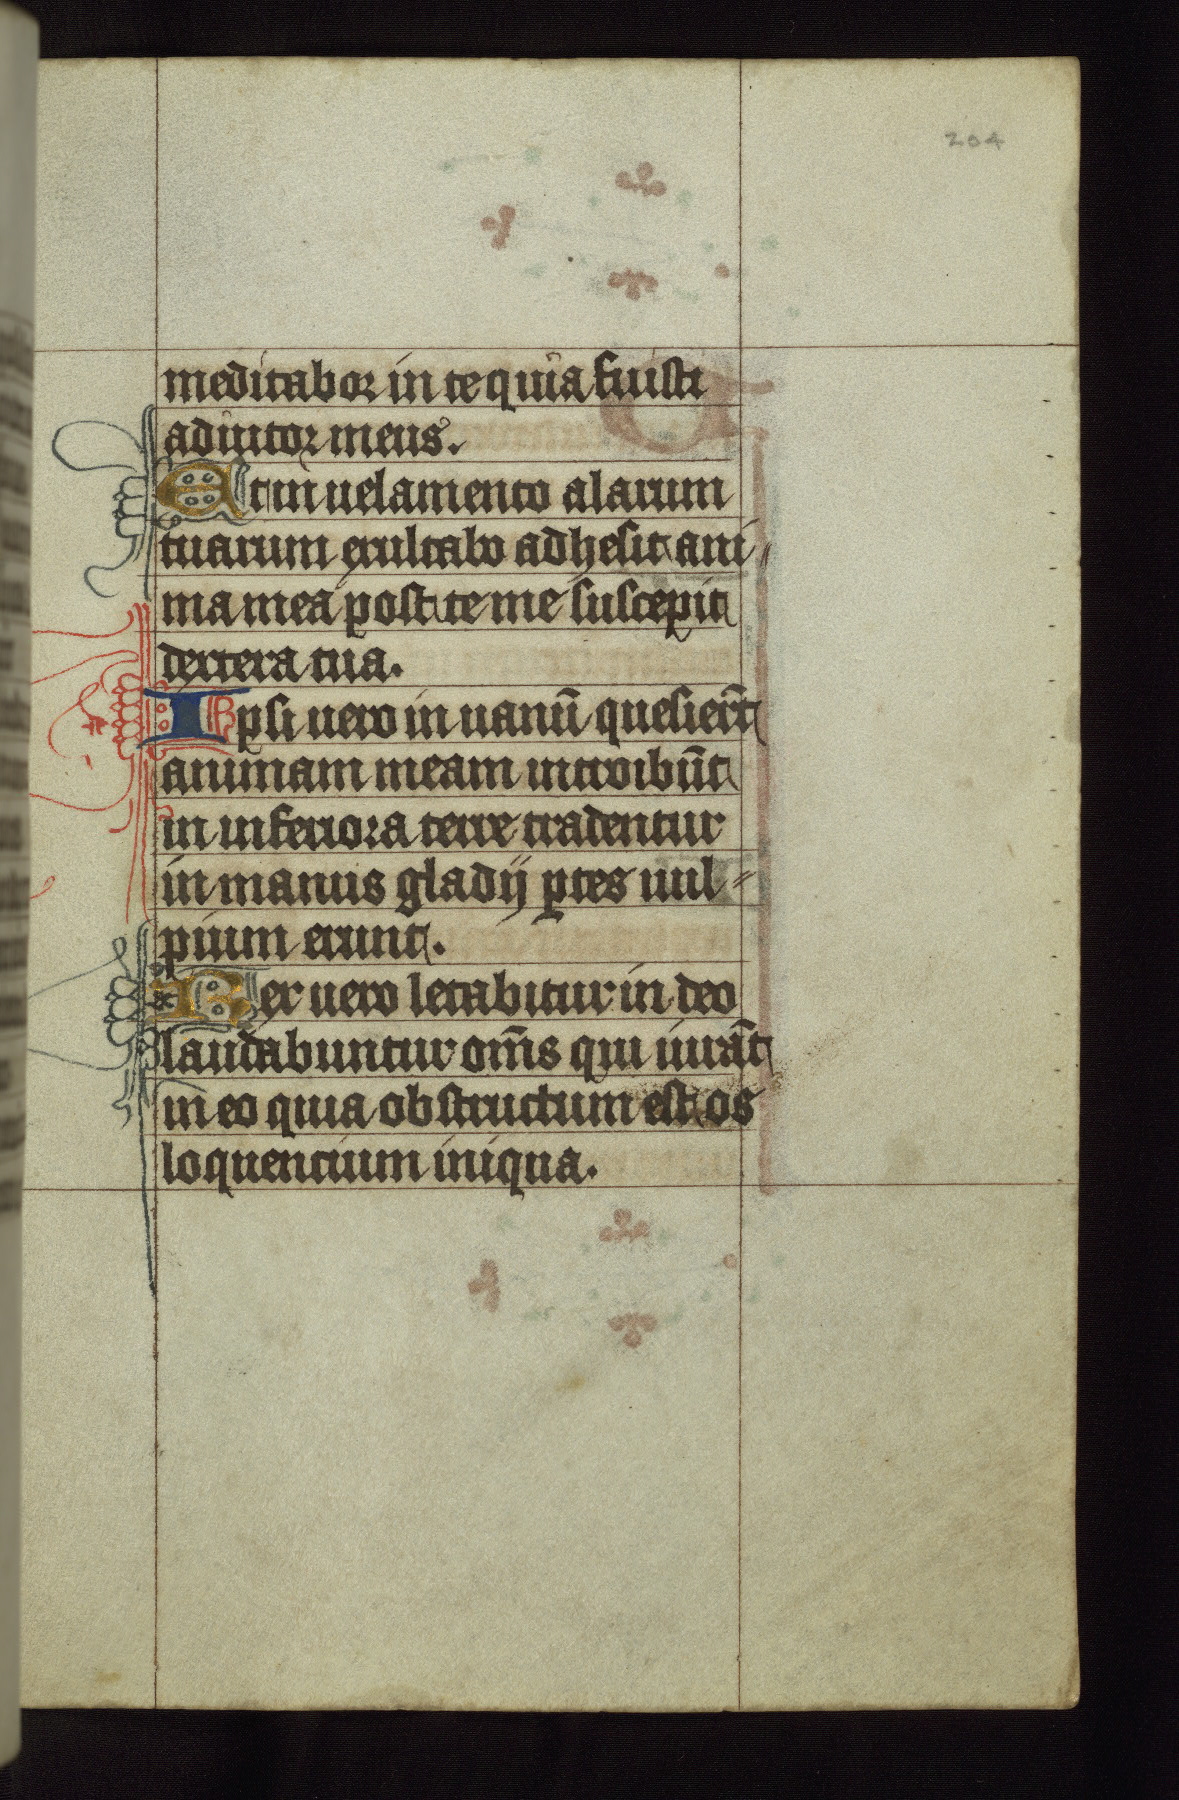 204
meditabor in te quia fuisti
adiutor meus.
Et in uelamento alarum
tuarum exultabo adhesit ani-
ma mea post te me suscepit
dextera tua.
Ipsi uero in uanū quesier̄t
animam meam introibūt
in inferiora terre tradentur
in manus gladij ꝑtes uul-
pium erunt.
Rex uero letabitur in deo
laudabuntur om̄s qui iurāt
in eo quia obstructum est os
loquencium iniqua.